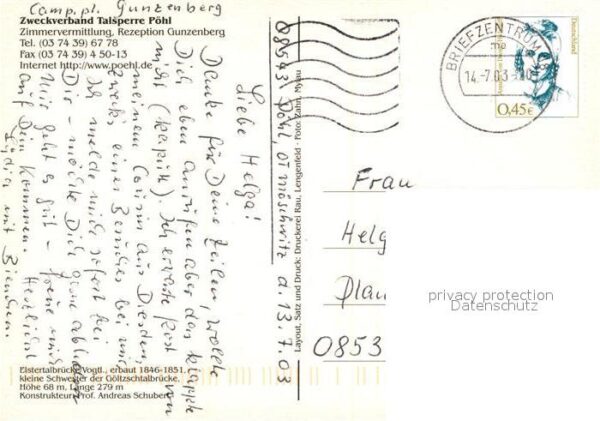 Camp.pl. Gunzenberg
Zweckverband Talsperre Pöhl
Zimmervermittlung, Rezeption Gunzenberg
Tel. (03 74 39) 67 78
Fax (03 74 39) 4 50-13
Internet http://www.poehl.de
08543 Pöhl, OT Möschwitz d. 13.7.03
Liebe Helga!
Danke für Deine Zeilen, wollte
Dich eben anrufen aber das klappte
nicht (kaputt). Ich erwarte Post von
meinem Cousin aus Dresden
zwecks eines Besuches bei mir.
Ich melde mich sofort bei
Dir - möchte Dich gerne abholen
Mir geht es gut - freue mich
auf Dein Kommen. Herzlichst
Lydia mit Bienchen.
Elstertalbrücke Vogtl., erbaut 1846-1851,
kleine Schwester der Göltzschtalbrücke,
Höhe 68 m, Länge 279 m
Konstrukteur: Prof. Andreas Schubert
Layout, Satz und Druck: Druckerei Rau, Lengenfeld · Foto: Zahn, Mylau
BRIEFZENTRUM
mo
14.-7.03
Deutschland
0,45€
Frau
Helg
Plau
0853
privacy protection
Datenschutz